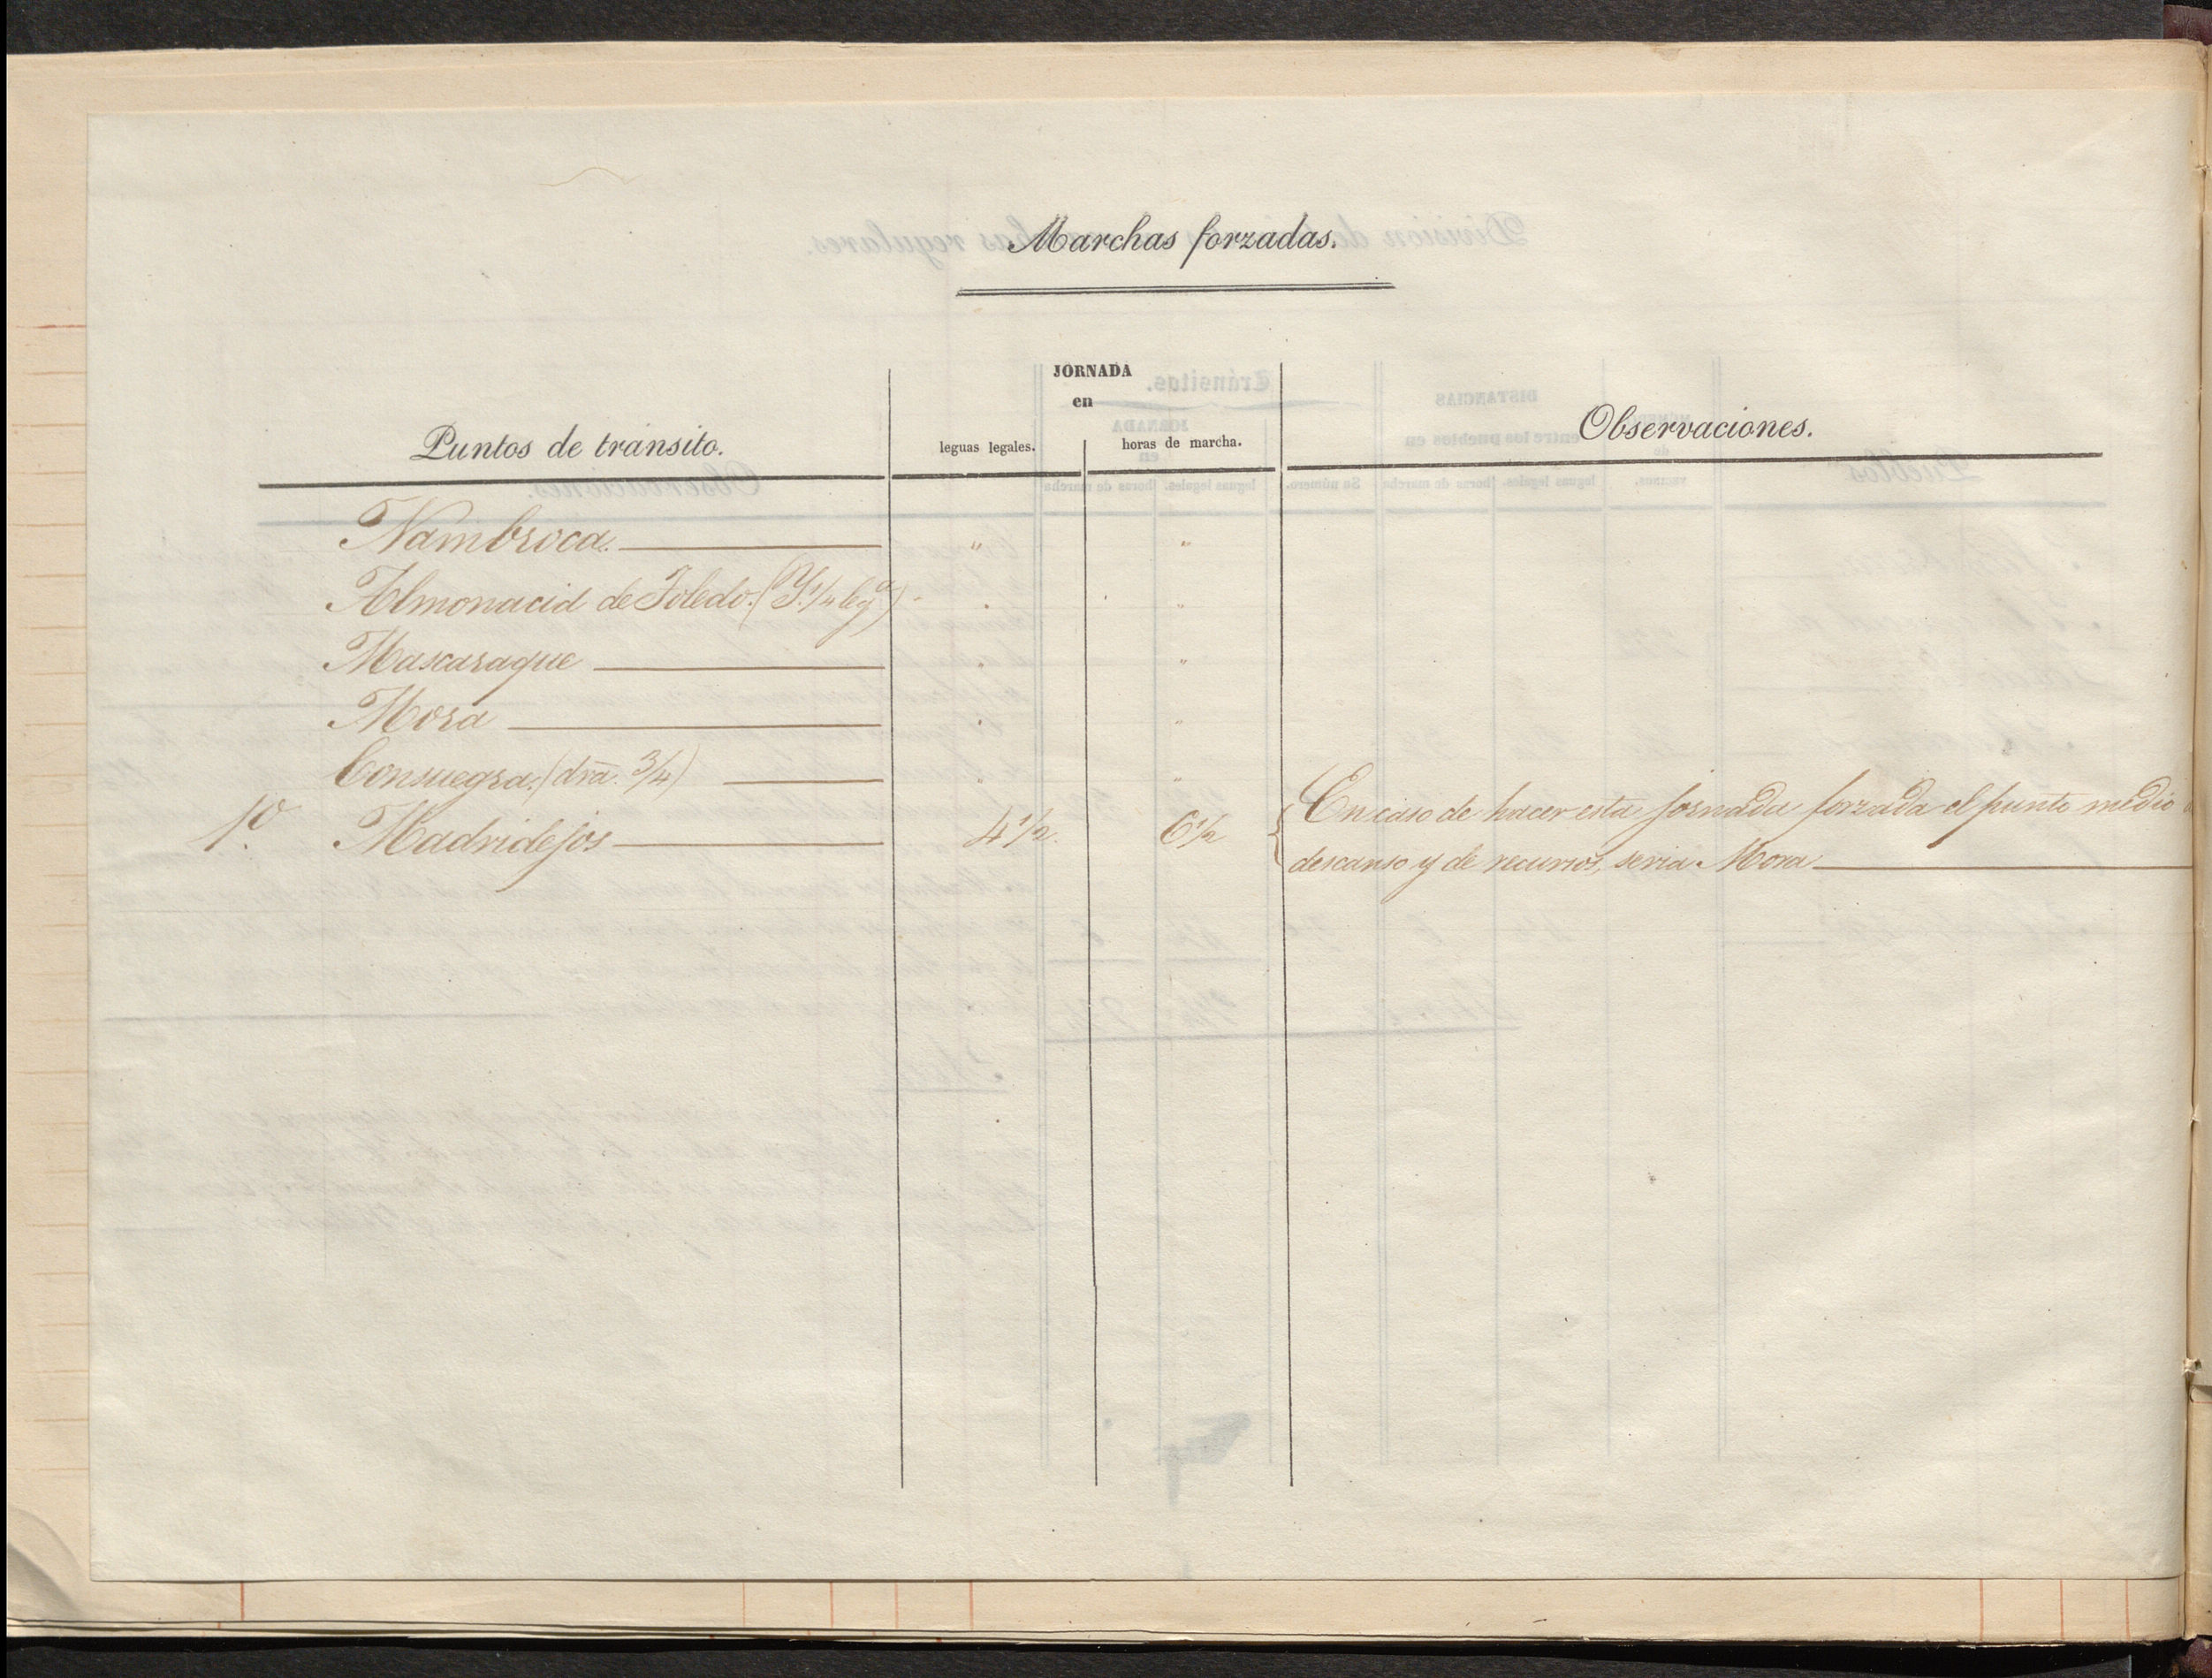 Marchas forzadas.
JORNADA
en
Puntos de tránsito.
leguas legales.
horas de marcha.
Observaciones.
Nambroca. " "
Almonacid de Toledo. (Y. 1/4 leg.ª) " "
Mascaraque " "
Mora " "
Consuegra. (dra. 3/4) " "
1º. Madridejos 4 1/2. 6 1/2
En caso de hacer esta jornada forzada el punto medio
descanso y de recursos, seria Mora